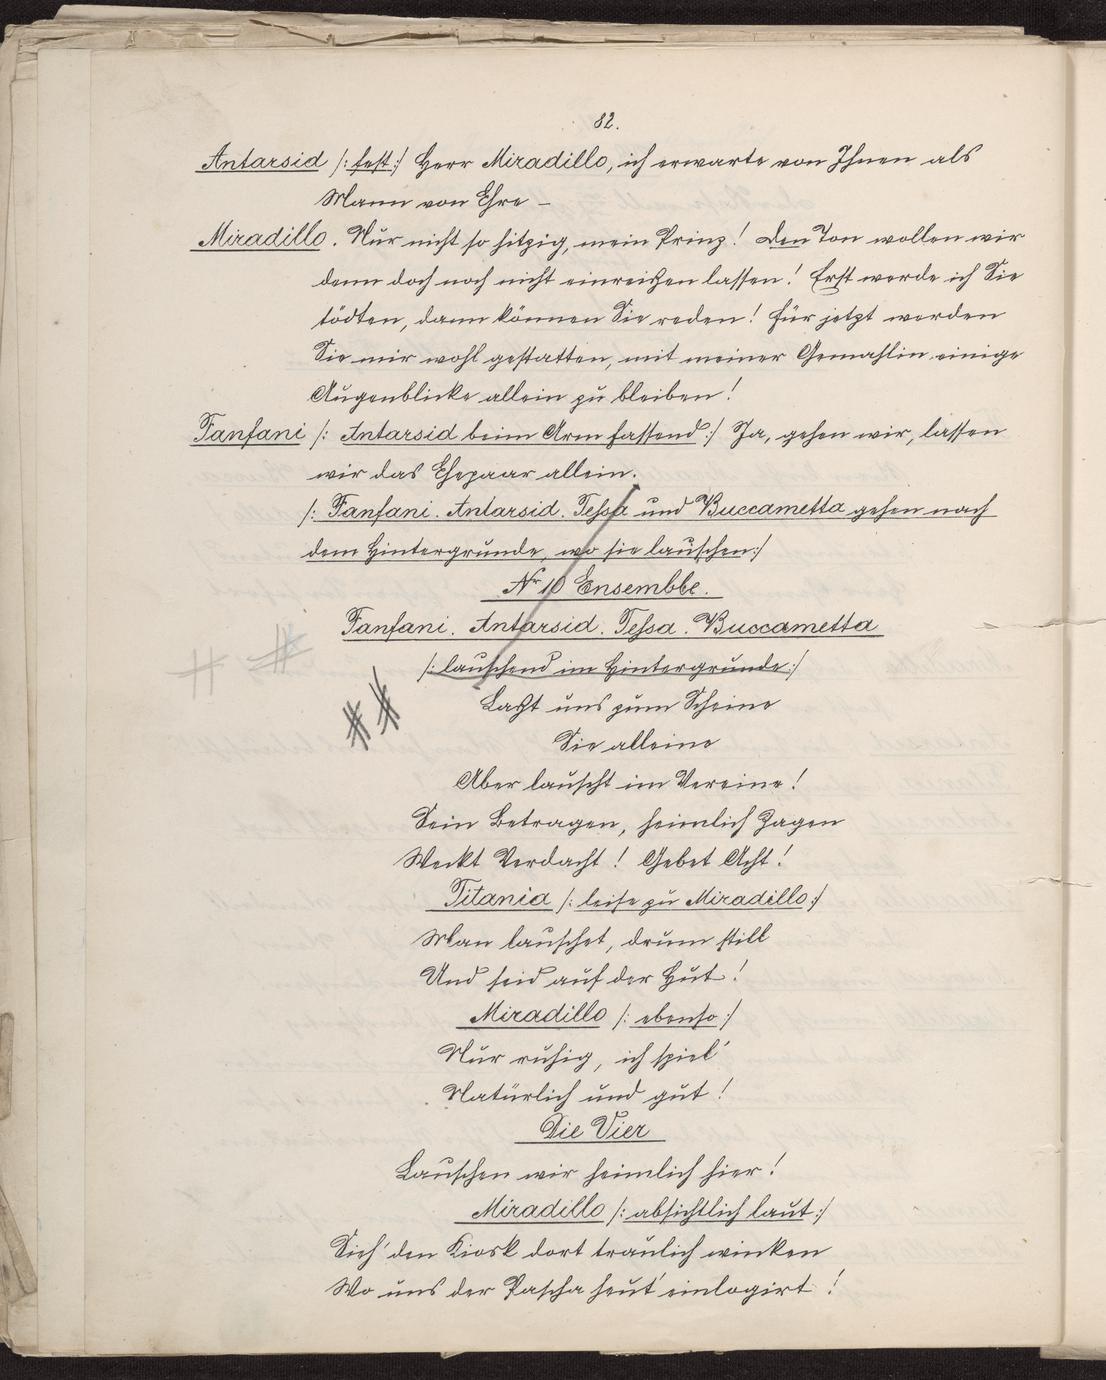 82.
Antarsid /: fest :/ Herr Miradillo, ich erwarte von Ihnen als
Mann von Ehre –
Miradillo. Nur nicht so hitzig, mein Prinz! Den Ton wollen wir
denn doch noch nicht einreißen lassen! Erst werde ich Sie
tödten, dann können Sie reden! Für jetzt werden
Sie mir wohl gestatten, mit meiner Gemahlin einige
Augenblicke allein zu bleiben!
Fanfani /: Antarsid beim Arm fassend :/ Ja, gehen wir, lassen
wir das Ehepaar allein.
/: Fanfani. Antarsid. Tessa und Buccametta gehen nach
dem Hintergrunde, wo sie lauschen :/
Nr 10 Ensembbe.
Fanfani. Antarsid. Tessa. Buccametta
/: lauschend im Hintergrunde :/
Laßt uns zum Scheine
Sie alleine
Aber lauscht im Vereine!
Sein Betragen, heimlich Zagen
Weckt Verdacht! Gebet Acht!
Titania /: leise zu Miradillo :/
Man lauschet, drum still
Und seid auf der Hut!
Miradillo /: ebenso :/
Nur ruhig, ich spiel'
Natürlich und gut!
Die Vier
Lauschen wir heimlich hier!
Miradillo /: absichtlich laut :/
Sieh' den Kiosk dort traulich winken
Wo uns der Pascha heut' einlogirt!